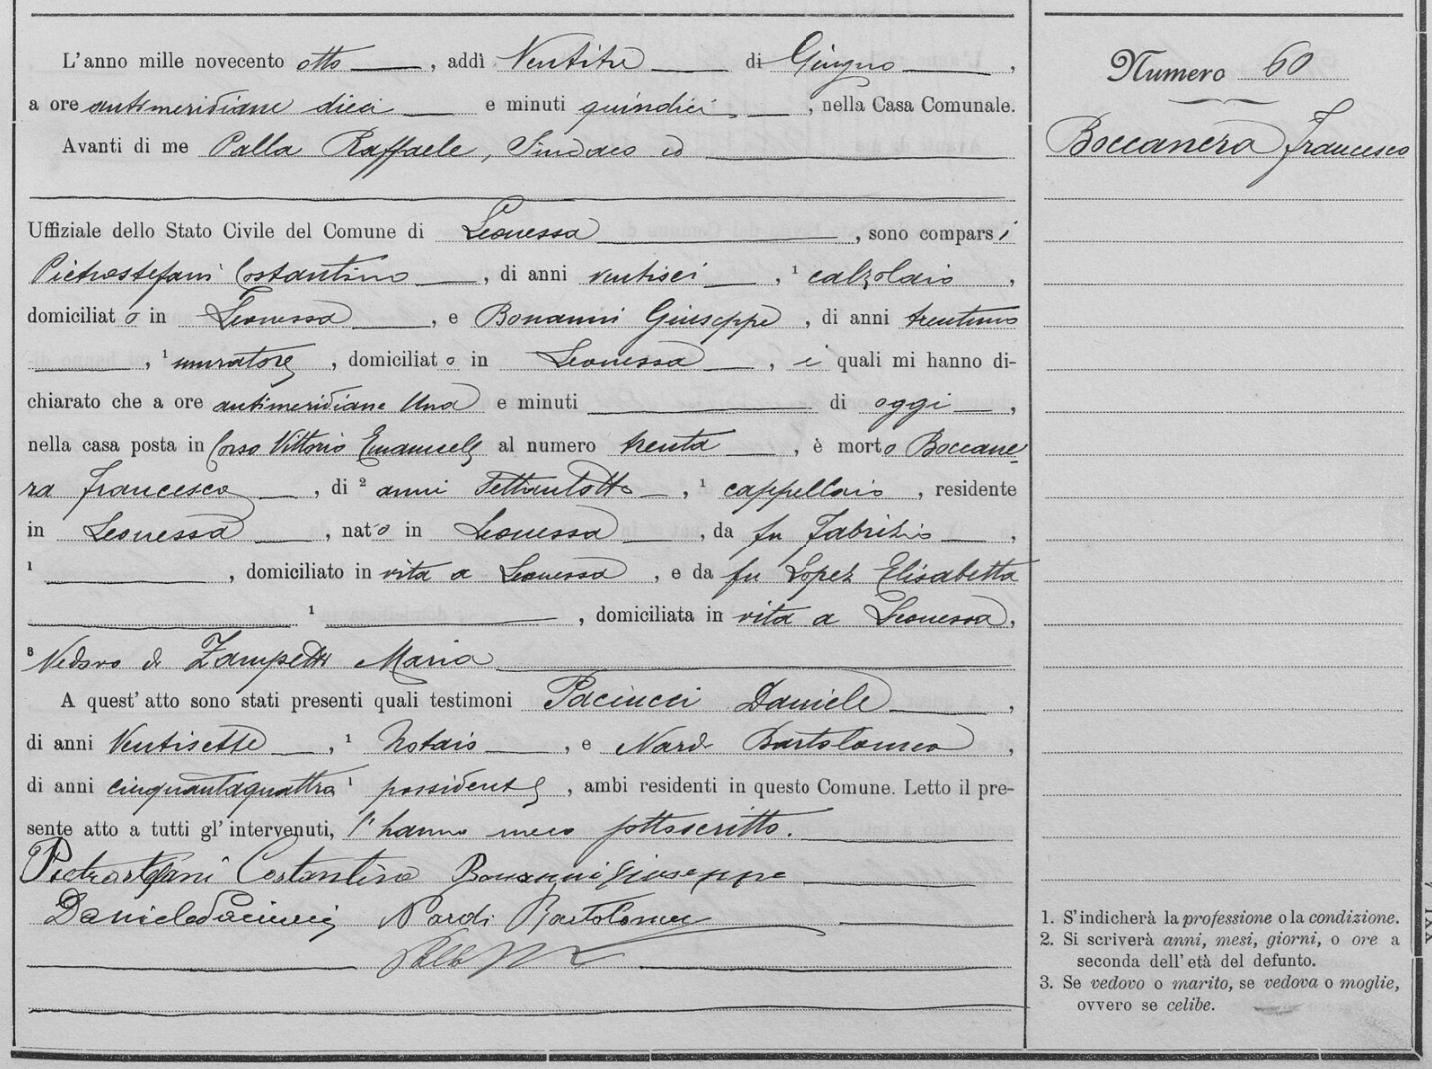 L'anno mille novecento otto, addì Ventitre di Giugno,
a ore antimeridiane dieci e minuti quindici, nella Casa Comunale.
Avanti di me Palla Raffaele, Sindaco ed
Uffiziale dello Stato Civile del Comune di Leonessa, sono comparsi
Pietrostefani Costantino, di anni ventisei, ¹ calzolaio,
domiciliato in Leonessa, e Bonanni Giuseppe, di anni trentuno
, ¹ muratore, domiciliato in Leonessa, i quali mi hanno di-
chiarato che a ore antimeridiane Una e minuti di oggi,
nella casa posta in Corso Vittorio Emanuele al numero trenta, è morto Boccane-
ra Francesco, di ² anni Settantotto, ¹ cappellaio, residente
in Leonessa, nato in Leonessa, da fu Fabrizio,
¹ , domiciliato in vita a Leonessa, e da fu Lopez Elisabetta
¹ , domiciliata in vita a Leonessa,
³ Vedovo di Zampetti Maria
A quest'atto sono stati presenti quali testimoni Paciucci Daniele,
di anni Ventisette, ¹ Notaio, e Nardi Bartolomeo,
di anni cinquantaquattro ¹ possidente, ambi residenti in questo Comune. Letto il pre-
sente atto a tutti gl'intervenuti, l'hanno meco sottoscritto.
Pietrostefani Costantino Bonanni Giuseppe
Daniele Paciucci Nardi Bartolomeo
Palla
Numero 60
Boccanera Francesco
1. S'indicherà la professione o la condizione.
2. Si scriverà anni, mesi, giorni, o ore a
seconda dell'età del defunto.
3. Se vedovo o marito, se vedova o moglie,
ovvero se celibe.